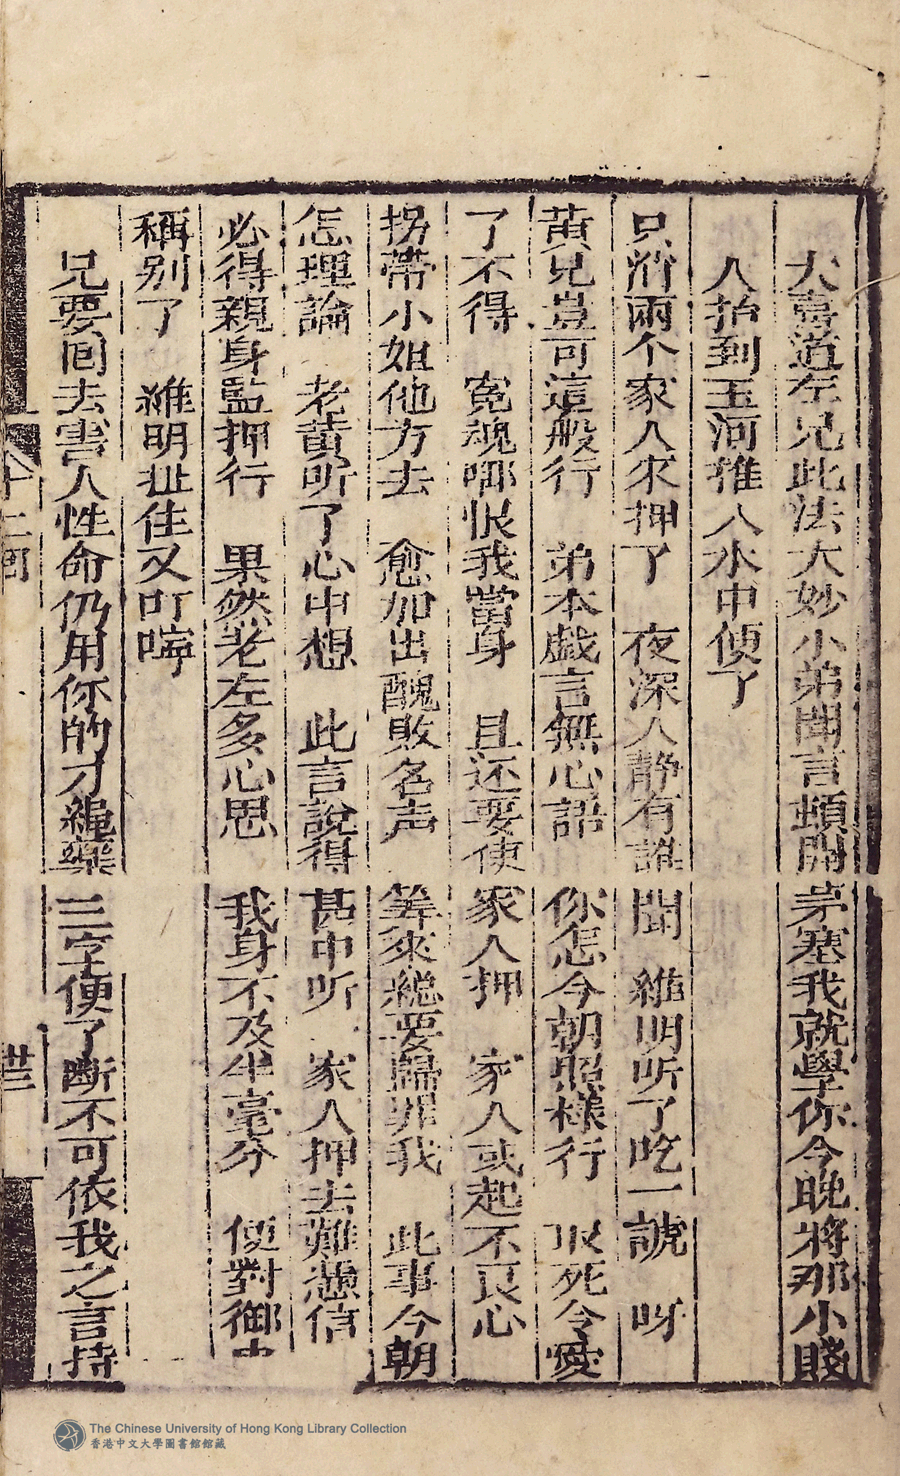 大喜道左兄此法大妙小弟聞言頓開茅塞我就學你今晚將那小賤
人抬到玉河推入水中便了
只消兩个家人來押了　夜深人静有誰聞　維明听了吃一諕　呀
黄兄豈可這般行　弟本戯言無心語　你怎今朝照樣行　取死令愛
了不得　寃魂啣恨我當身　且还要使家人押　家人或起不良心
拐帶小姐他方去　愈加出醜敗名声　筭來総要歸罪我　此事今朝
怎理論　老黄听了心中想　此言說得甚中听　家人押去難憑信
必得親身監押行　果然老左多心思　我身不及半毫分　便對御史
稱别了　維明扯住又叮嚀
兄要囘去害人性命仍用你的刀繩藥三字便了断不可依我之言持
十二囘
卄三
The Chinese University of Hong Kong Library Collection
香港中文大學圖書館館藏